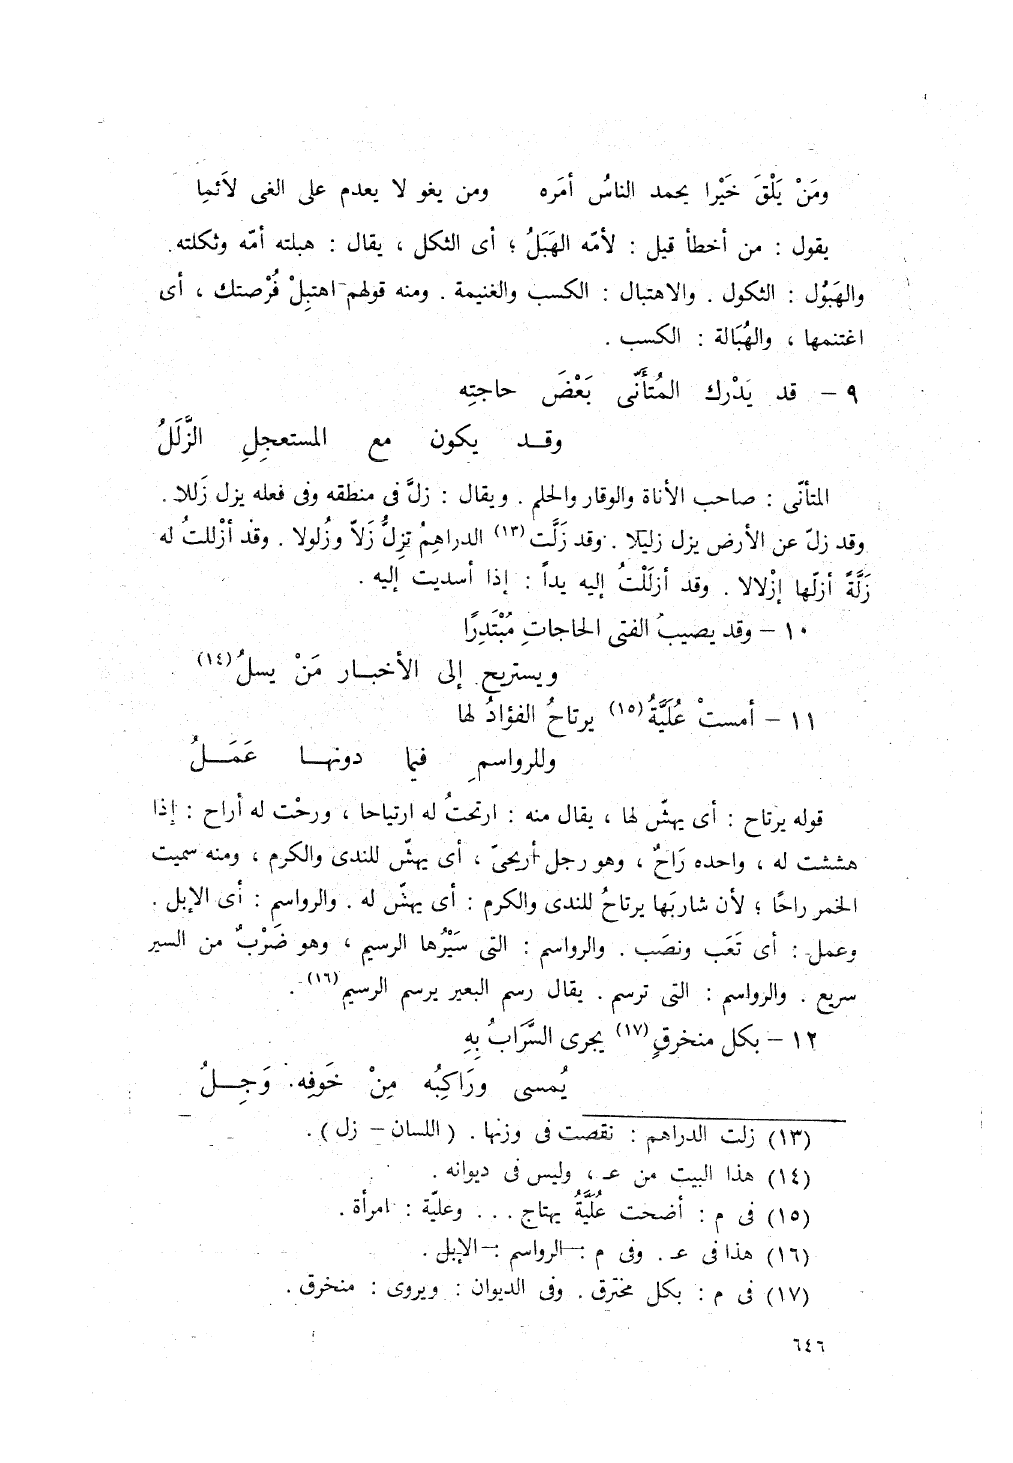 ومَنْ يَلْقَ خَيْرا يحمد الناسُ أمَره ومن يغو لا يعدم على الغى لاَئمِا
يقول : من أخطأ قيل : لأمّه الهَبَلُ ؛ أى الثكل ، يقال : هبلته أمّه وثكلته .
والهَبوُل : الثكول . والاهتبال : الكسب والغنيمة . ومنه قولهم اهتبِلْ فُرْصتك ، أى
اغتنمها ، والهُبَالة : الكسب .
٩ – قد يَدْرك المُتأَنّى بَعْضَ حاجتِه
وقــد يكون مع المستعجِلِ الزَّلَلُ
المتأنّى : صاحب الأناة والوقار والحلم . ويقال : زلَّ فى منطقه وفى فعله يزل زَللا .
وقد زلّ عن الأرض يزل زليلا . وقد زَلَّت (١٣) الدراهِمُ تزِلُّ زَلاّ وزُلولا . وقد أزْللتُ له
زَلَّةً أزلّها إزْلالا . وقد أزلَلْتُ إليه يداً : إذا أسديت إليه .
١٠ – وقد يصيبُ الفتى الحاجاتِ مُبْتَدِرًا
ويستريح إلى الأخبــار مَنْ يسلُ (١٤)
١١ – أمستْ عُلَيَّةُ (١٥) يرتاحُ الفؤادُ لها
وللرواسمِ فيما دونهــا عَمَــلُ
قوله يرتاح : أى يهشّ لها ، يقال منه : ارتحتُ له ارتياحا ، ورحْت له أراح : إذا
هششت له ، واحده رَاحٌ ، وهو رجل أريحىّ ، أى يهشّ للندى والكرم ، ومنه سميت
الخمر راحًا ؛ لأن شاربَها يرتاحُ للندى والكرم : أى يهشّ له . والرواسم : أى الإبل .
وعمل : أى تَعَب ونصَب . والرواسم : التى سَيْرُها الرسيم ، وهو ضَرْبٌ من السير
سريع . والرواسم : التى ترسم . يقال رسم البعير يرسم الرسيم (١٦) .
١٢ – بكل منخرقٍ (١٧) يجرى السَّرَابُ بِهِ
يُمسى ورَاكِبُه مِنْ خَوفِه وَجِــلُ
(١٣) زلت الدراهم : نقصت فى وزنها . ( اللسان – زل ) .
(١٤) هذا البيت من عـ ، وليس فى ديوانه .
(١٥) فى م : أضحت عُلَيَّةُ يهتاج . . . وعليّة : امرأة .
(١٦) هذا فى عـ . وفى م : الرواسم : الإبل .
(١٧) فى م : بكل مخترق . وفى الديوان : ويروى : منخرق .
٦٤٦